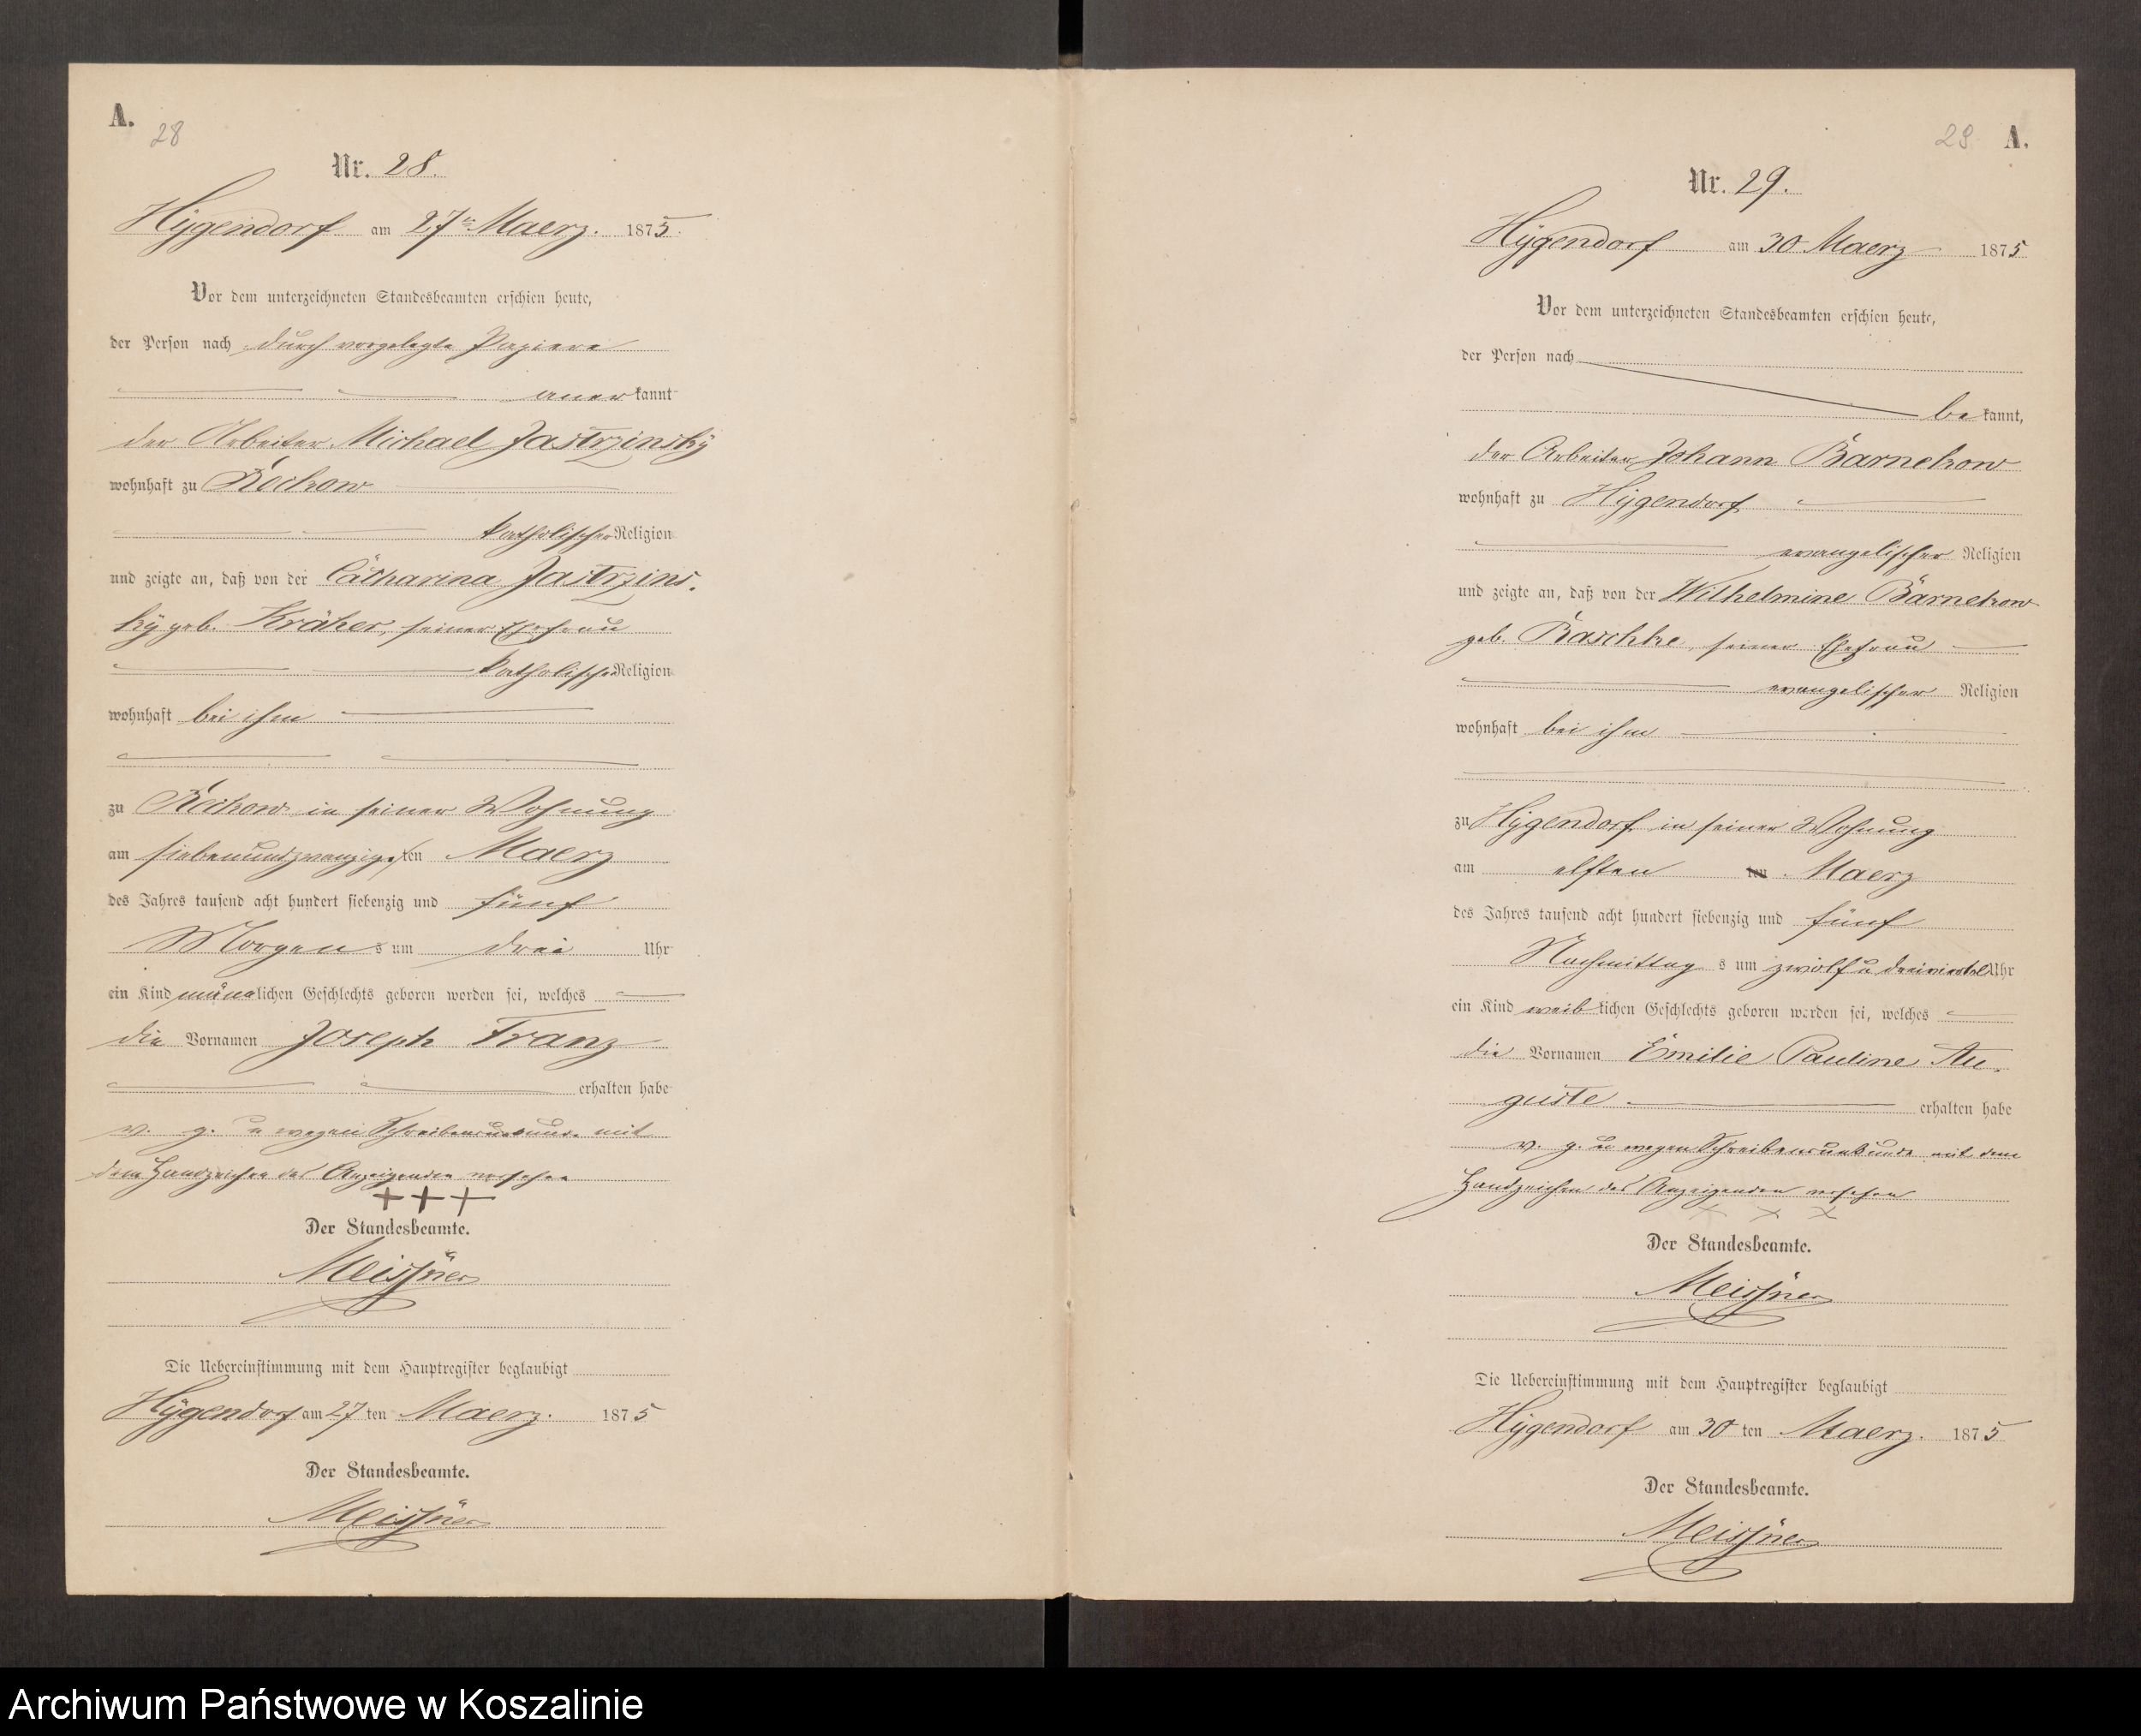 A.
28
Nr. 28.
Hÿgendorf am 27ten Maerz. 1875.
Vor dem unterzeichneten Standesbeamten erschien heute,
der Person nach durch vorgelegte Papiere
anerkannt
der Arbeiter Michael Jastrzinsky
wohnhaft zu Reckow
katholischer Religion
und zeigte an, daß von der Catharina Jastrzins.
ky geb. Kräker, seiner Ehefrau
katholischer Religion
wohnhaft bei ihm
zu Reckow in seiner Wohnung
am siebenundzwanzigsten Maerz
des Jahres tausend acht hundert siebenzig und fünf
Morgens um drei Uhr
ein Kind männlichen Geschlechts geboren worden sei, welches
die Vornamen Joseph Franz
erhalten habe
v. g. u wegen Schreibensunkunde mit
dem Handzeichen des Anzeigenden versehen
+++
Der Standesbeamte.
Meissner
Die Uebereinstimmung mit dem Hauptregister beglaubigt
Hÿgendorf am 27 ten Maerz. 1875
Der Standesbeamte.
Meissner
29 A.
Nr. 29.
Hÿgendorf am 30 Maerz 1875
Vor dem unterzeichneten Standesbeamten erschien heute,
der Person nach
bekannt,
der Arbeiter Johann Barnekow
wohnhaft zu Hÿgendorf
evangelischer Religion
und zeigte an, daß von der Wilhelmine Barnekow
geb. Raschke, seiner Ehefrau
evangelischer Religion
wohnhaft bei ihm
zu Hÿgendorf in seiner Wohnung
am elften ten Maerz
des Jahres tausend acht hundert siebenzig und fünf
Nachmittags um zwölf u dreiviertel Uhr
ein Kind weiblichen Geschlechts geboren worden sei, welches
die Vornamen Emilie Pauline Au.
guste erhalten habe
v. g. u wegen Schreibensunkunde mit dem
Handzeichen des Anzeigenden versehen
x x x
Der Standesbeamte.
Meissner
Die Uebereinstimmung mit dem Hauptregister beglaubigt
Hÿgendorf am 30 ten Maerz. 1875
Der Standesbeamte.
Meissner
Archiwum Państwowe w Koszalinie